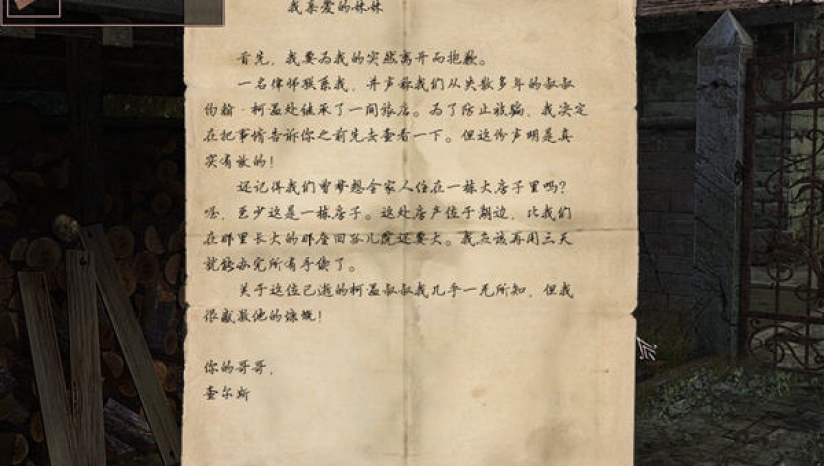 我亲爱的妹妹
首先，我要为我的突然离开而抱歉。
一名律师联系我，并声称我们从失散多年的叔叔
约翰·柯温处继承了一间旅店。为了防止被骗，我决定
在把事情告诉你之前先去查看一下。但这份声明是真
实有效的！
还记得我们曾梦想全家人住在一栋大房子里吗？
嗯，至少这是一栋房子。这处房产位于湖边，比我们
在那里长大的那座旧孤儿院还要大。我应该再用三天
就能办完所有手续了。
关于这位已逝的柯温叔叔我几乎一无所知，但我
很感激他的慷慨！
你的哥哥，
查尔斯